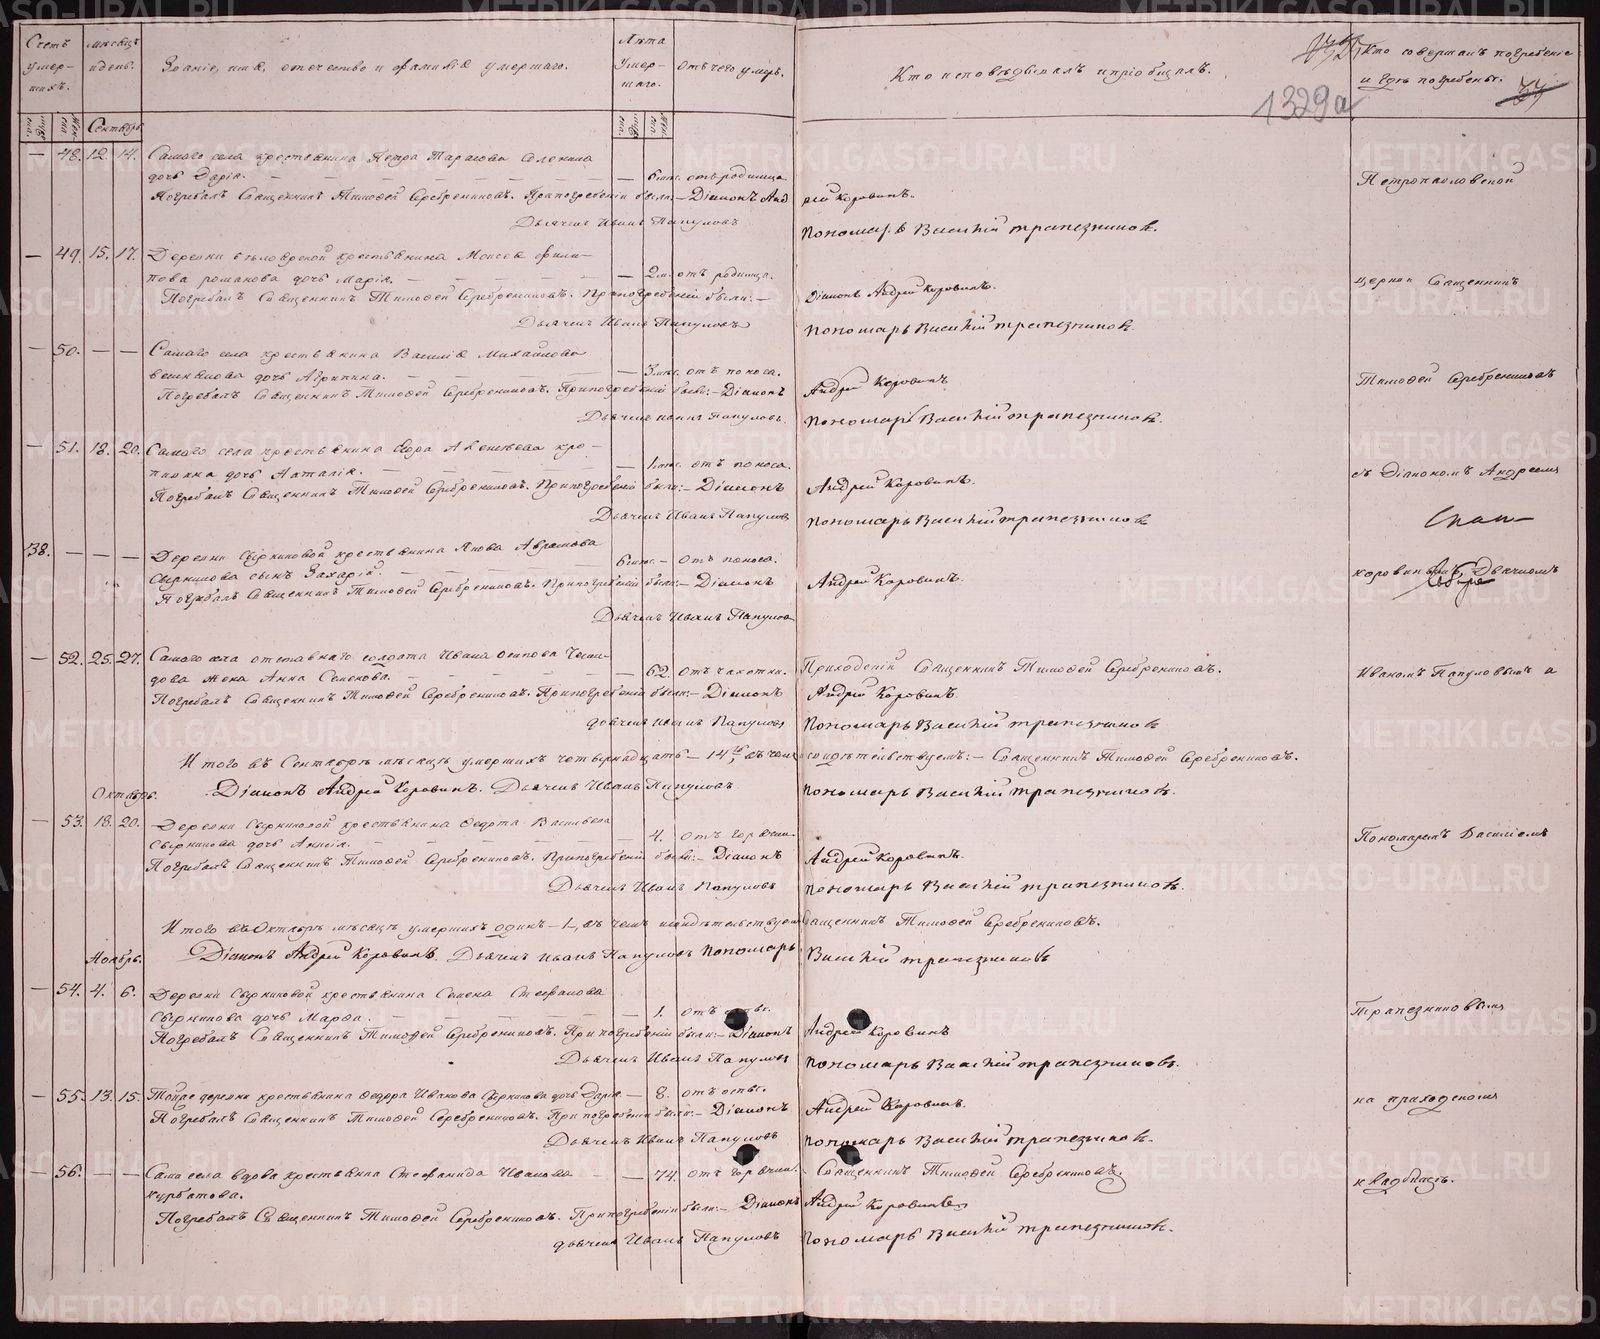 Счетъ умер-шихъ.
мѣсяцъ и день.
Званіе, имя, отечество и фамилія умершаго.
Лѣта умер-шаго.
отъ чего умеръ.
Кто исповѣдывалъ и пріобщалъ.
Кто совершалъ погребеніе и гдѣ погребены.
1329а
Сентябрь
— 48. 12. 14. Самаго села крестьянина Петра Тарасова
дочь Дарія. — — 6 мес. отъ родимца
Погребалъ Священникъ Тимофей Серебрениковъ. При погребеніи были: — Діаконъ Андрей Коровинъ.
Дьячекъ Иванъ Папуловъ Пономарь Василій Трапезниковъ.
— 49. 15. 17. Деревни крестьянина Моисея Фили-
пова Романова дочь Марія. — — 2 н. отъ родимца.
Погребалъ Священникъ Тимофей Серебрениковъ. При погребеніи были: — Діаконъ Андрей Коровинъ.
Дьячекъ Иванъ Папуловъ Пономарь Василій Трапезниковъ.
— 50. — — Самаго села крестьянина Василія Михайлова
дочь Агрипина. — — 3 мес. отъ поноса.
Погребалъ Священникъ Тимофей Серебрениковъ. При погребеніи были: — Діаконъ Андрей Коровинъ
Дьячекъ Иванъ Папуловъ. Пономарь Василій Трапезниковъ.
— 51. 18. 20. Самаго села крестьянина
дочь Наталія. — — 1 мес. отъ поноса.
Погребалъ Священникъ Тимофей Серебрениковъ. При погребеніи были: — Діаконъ Андрей Коровинъ.
Дьячекъ Иванъ Папуловъ Пономарь Василій Трапезниковъ
38. — — — Деревни Сыриковой крестьянина Якова Аврамова
Сырикова сынъ Захарій. — 6 мес. — отъ поноса.
Погребалъ Священникъ Тимофей Серебрениковъ. При погребеніи были: — Діаконъ Андрей Коровинъ.
Дьячекъ Иванъ Папуловъ
— 52. 25. 27. Самаго села отставнаго солдата Ивана Осипова
жена Анна Семенова. — — 62. отъ чахотки. Приходскій Священникъ Тимофей Серебрениковъ.
Погребалъ Священникъ Тимофей Серебрениковъ. При погребеніи были: — Діаконъ Андрей Коровинъ
дьячекъ Иванъ Папуловъ Пономарь Василій Трапезниковъ
Итого въ Сентябрѣ мѣсяцѣ умершихъ четырнадцать — 14, въ чемъ свидѣтельствуемъ: — Священникъ Тимофей Серебрениковъ.
Діаконъ Андрей Коровинъ. Дьячекъ Иванъ Папуловъ Пономарь Василій Трапезниковъ.
Октябрь.
— 53. 18. 20. Деревни Сыриковой крестьянина Федота Васильева
Сырикова дочь — — 4. отъ горячки.
Погребалъ Священникъ Тимофей Серебрениковъ. При погребеніи были: — Діаконъ Андрей Коровинъ.
Дьячекъ Иванъ Папуловъ Пономарь Василій Трапезниковъ.
Итого въ Октябрѣ мѣсяцѣ умершихъ одинъ — 1, въ чемъ свидѣтельствуемъ Священникъ Тимофей Серебрениковъ.
Діаконъ Андрей Коровинъ. Дьячекъ Иванъ Папуловъ Пономарь Василій Трапезниковъ
Ноябрь.
— 54. 4. 6. Деревни Сыриковой крестьянина Семена Стефанова
Сырикова дочь Марфа. — — 1. отъ оспы.
Погребалъ Священникъ Тимофей Серебрениковъ. При погребеніи были: — Діаконъ Андрей Коровинъ
Дьячекъ Иванъ Папуловъ Пономарь Василій Трапезниковъ.
— 55. 13. 15. Тойже деревни крестьянина Федора Иванова Сырикова дочь Дарія — 8. отъ оспы.
Погребалъ Священникъ Тимофей Серебрениковъ. При погребеніи были: — Діаконъ Андрей Коровинъ.
Дьячекъ Иванъ Папуловъ Пономарь Василій Трапезниковъ.
— 56. — — села вдова крестьянка Стефанида Иванова — — 74. отъ горячки. — Священникъ Тимофей Серебрениковъ.
Курбатова.
Погребалъ Священникъ Тимофей Серебрениковъ. При погребеніи были: — Діаконъ Андрей Коровинъ
дьячекъ Иванъ Папуловъ Пономарь Василій Трапезниковъ.
Петропавловской
церкви Священникъ
Тимофей Серебрениковъ
съ Діакономъ Андреемъ
Коровинымъ, Дьячкомъ
Иваномъ Папуловымъ и
Пономаремъ Василіемъ
Трапезниковымъ
на приходскомъ
кладбищѣ.
METRIKI.GASO-URAL.RU